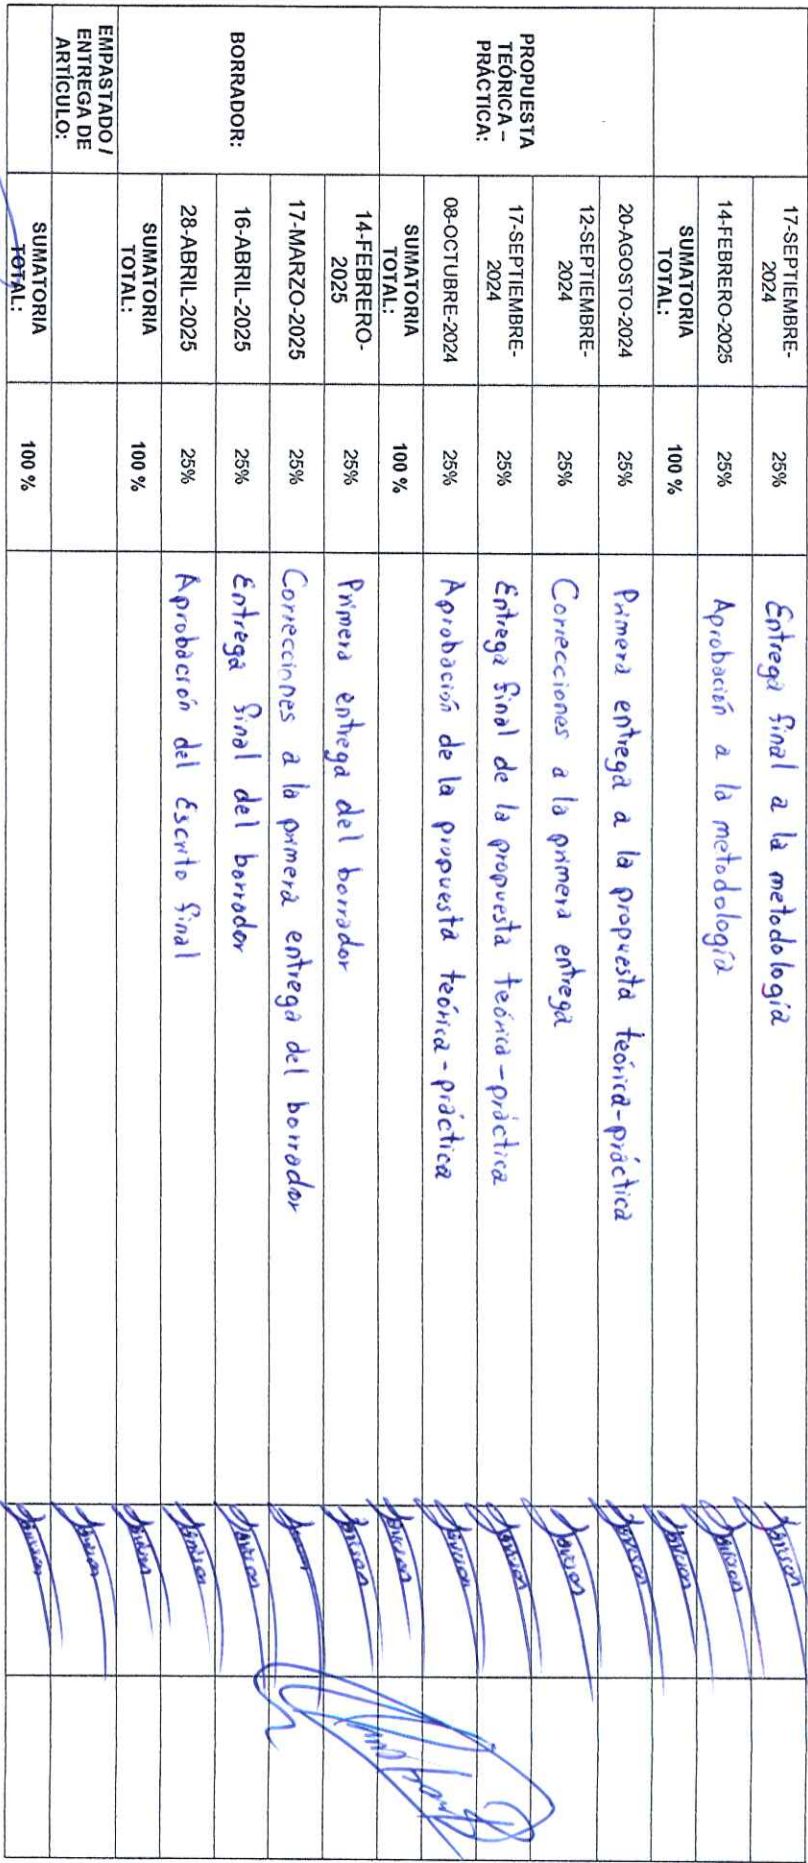 17-SEPTIEMBRE-
2024
25%
Entrega final a la metodología
14-FEBRERO-2025
25%
Aprobación a la metodología
SUMATORIA
TOTAL:
100 %
PROPUESTA
TEÓRICA –
PRÁCTICA:
20-AGOSTO-2024
25%
Primera entrega a la propuesta teórica-práctica
12-SEPTIEMBRE-
2024
25%
Correcciones a la primera entrega
17-SEPTIEMBRE-
2024
25%
Entrega final de la propuesta teórica-práctica
08-OCTUBRE-2024
25%
Aprobación de la propuesta teórica-práctica
SUMATORIA
TOTAL:
100 %
BORRADOR:
14-FEBRERO-
2025
25%
Primera entrega del borrador
17-MARZO-2025
25%
Correcciones a la primera entrega del borrador
16-ABRIL-2025
25%
Entrega final del borrador
28-ABRIL-2025
25%
Aprobación del Escrito final
SUMATORIA
TOTAL:
100 %
EMPASTADO /
ENTREGA DE
ARTÍCULO:
SUMATORIA
TOTAL:
100 %